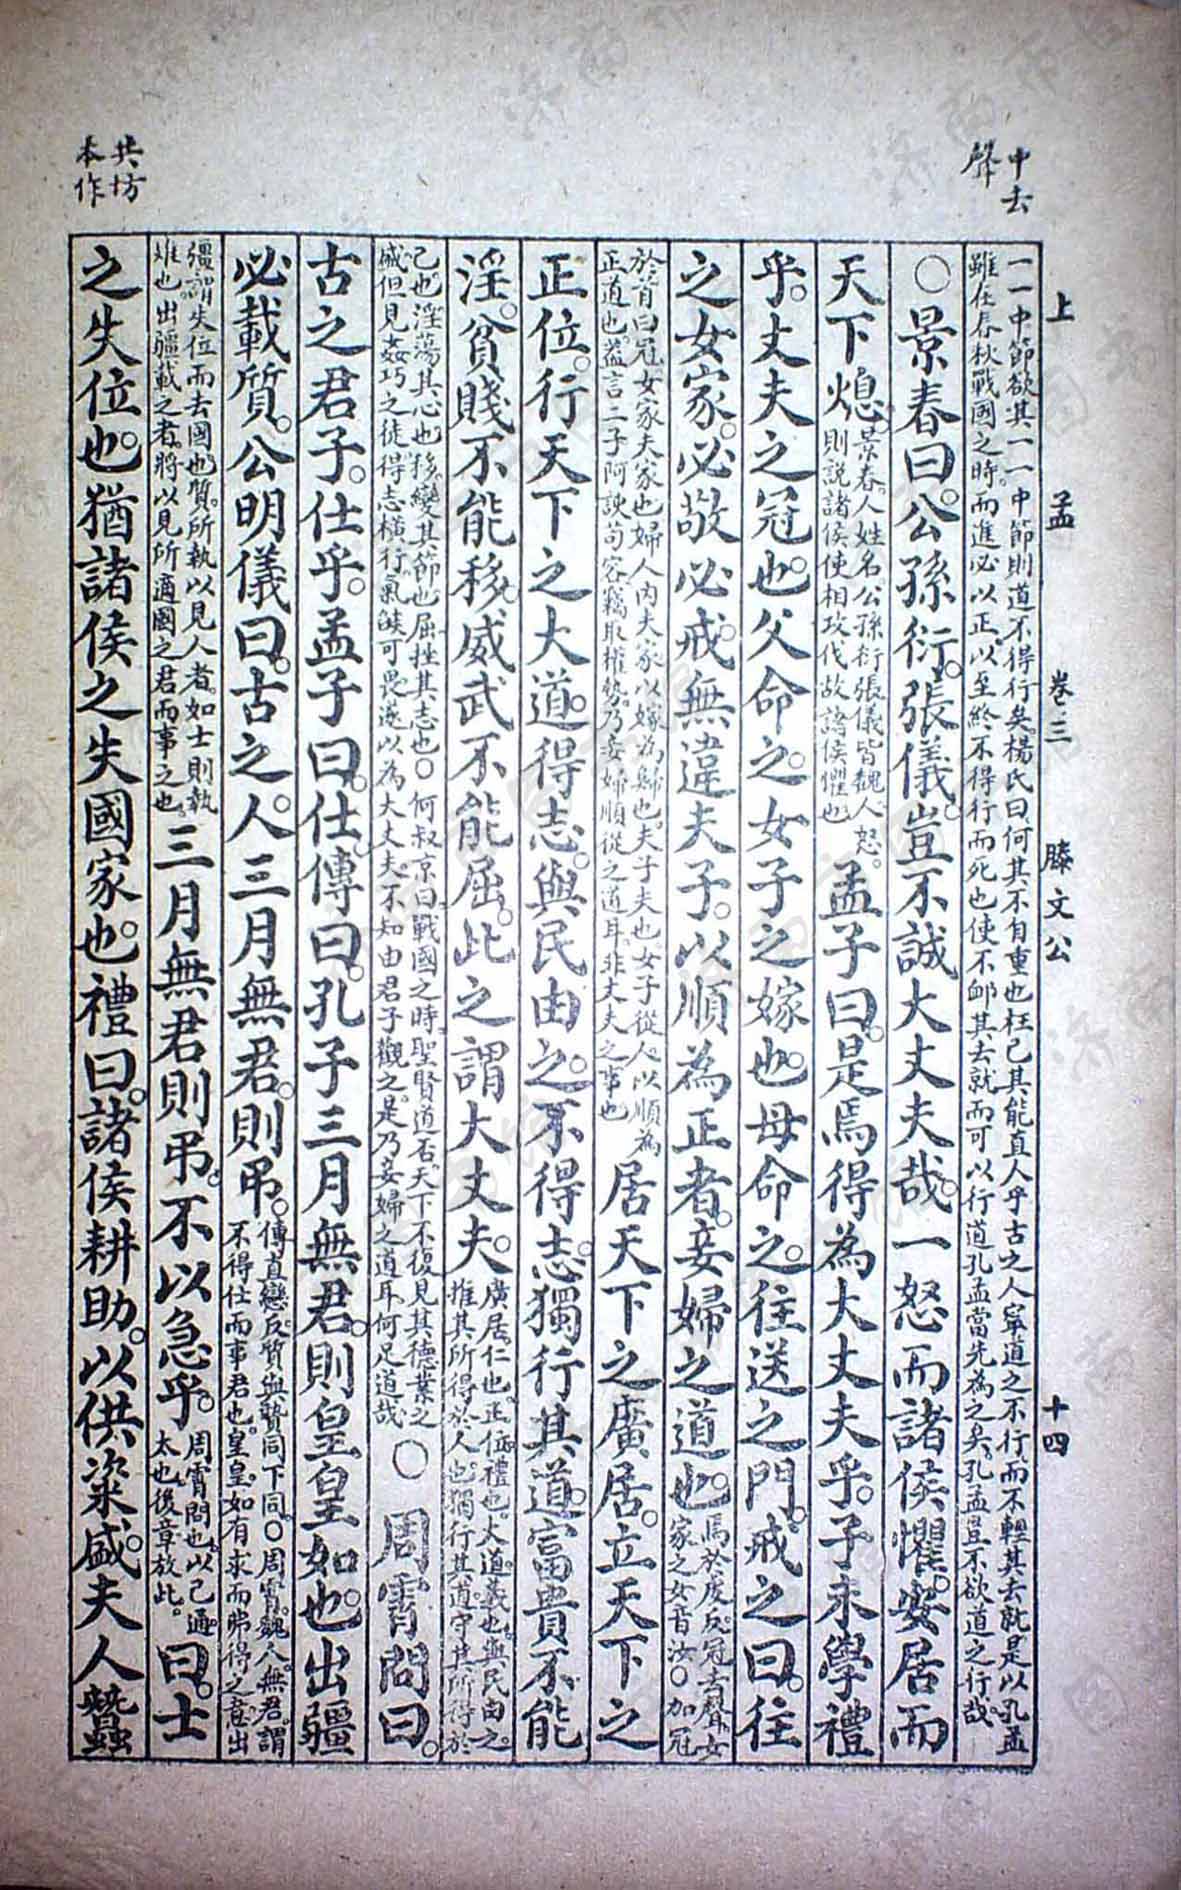 中去
聲
共坊
本作
上 孟 卷三 滕文公 十四
一一中節欲其一一中節則道不得行矣楊氏曰何其不自重也枉己其能直人乎古之人寧道之不行而不輕其去就是以孔孟
雖在春秋戰國之時而進必以正以至終不得行而死也使不卹其去就而可以行道孔孟當先為之矣孔孟豈不欲道之行哉
○景春曰公孫衍張儀豈不誠大丈夫哉一怒而諸侯懼安居而
天下熄
景春人姓名公孫衍張儀皆魏人怒
則說諸侯使相攻伐故諸侯懼也
孟子曰是焉得為大丈夫乎子未學禮
乎丈夫之冠也父命之女子之嫁也母命之往送之門戒之曰往
之女家必敬必戒無違夫子以順為正者妾婦之道也
焉於虔反冠去聲女
家之女音汝○加冠
於首曰冠女家夫家也婦人內夫家以嫁為歸也夫子夫也女子從人以順為
正道也蓋言二子阿諛苟容竊取權勢乃妾婦順從之道耳非丈夫之事也
居天下之廣居立天下之
正位行天下之大道得志與民由之不得志獨行其道富貴不能
淫貧賤不能移威武不能屈此之謂大丈夫
廣居仁也正位禮也大道義也與民由之
推其所得於人也獨行其道守其所得於
己也淫蕩其心也移變其節也屈挫其志也○何叔京曰戰國之時聖賢道否天下不復見其德業之
盛但見姦巧之徒得志橫行氣燄可畏遂以為大丈夫不知由君子觀之是乃妾婦之道耳何足道哉
○周霄問曰
古之君子仕乎孟子曰仕傳曰孔子三月無君則皇皇如也出疆
必載質公明儀曰古之人三月無君則弔
傳直戀反質與贄同下同○周霄魏人無君謂
不得仕而事君也皇皇如有求而弗得之意出
彊謂失位而去國也質所執以見人者如士則執
雉也出疆載之者將以見所適國之君而事之也
三月無君則弔不以急乎
周霄問也以已通
太也後章放此
曰士
之失位也猶諸侯之失國家也禮曰諸侯耕助以供粢盛夫人蠶